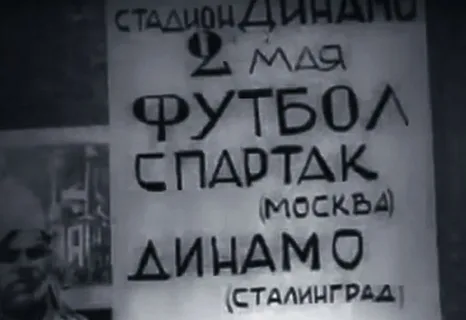 СТАДИОН ДИНАМО
2 МАЯ
ФУТБОЛ
СПАРТАК
(МОСКВА)
ДИНАМО
(СТАЛИНГРАД)